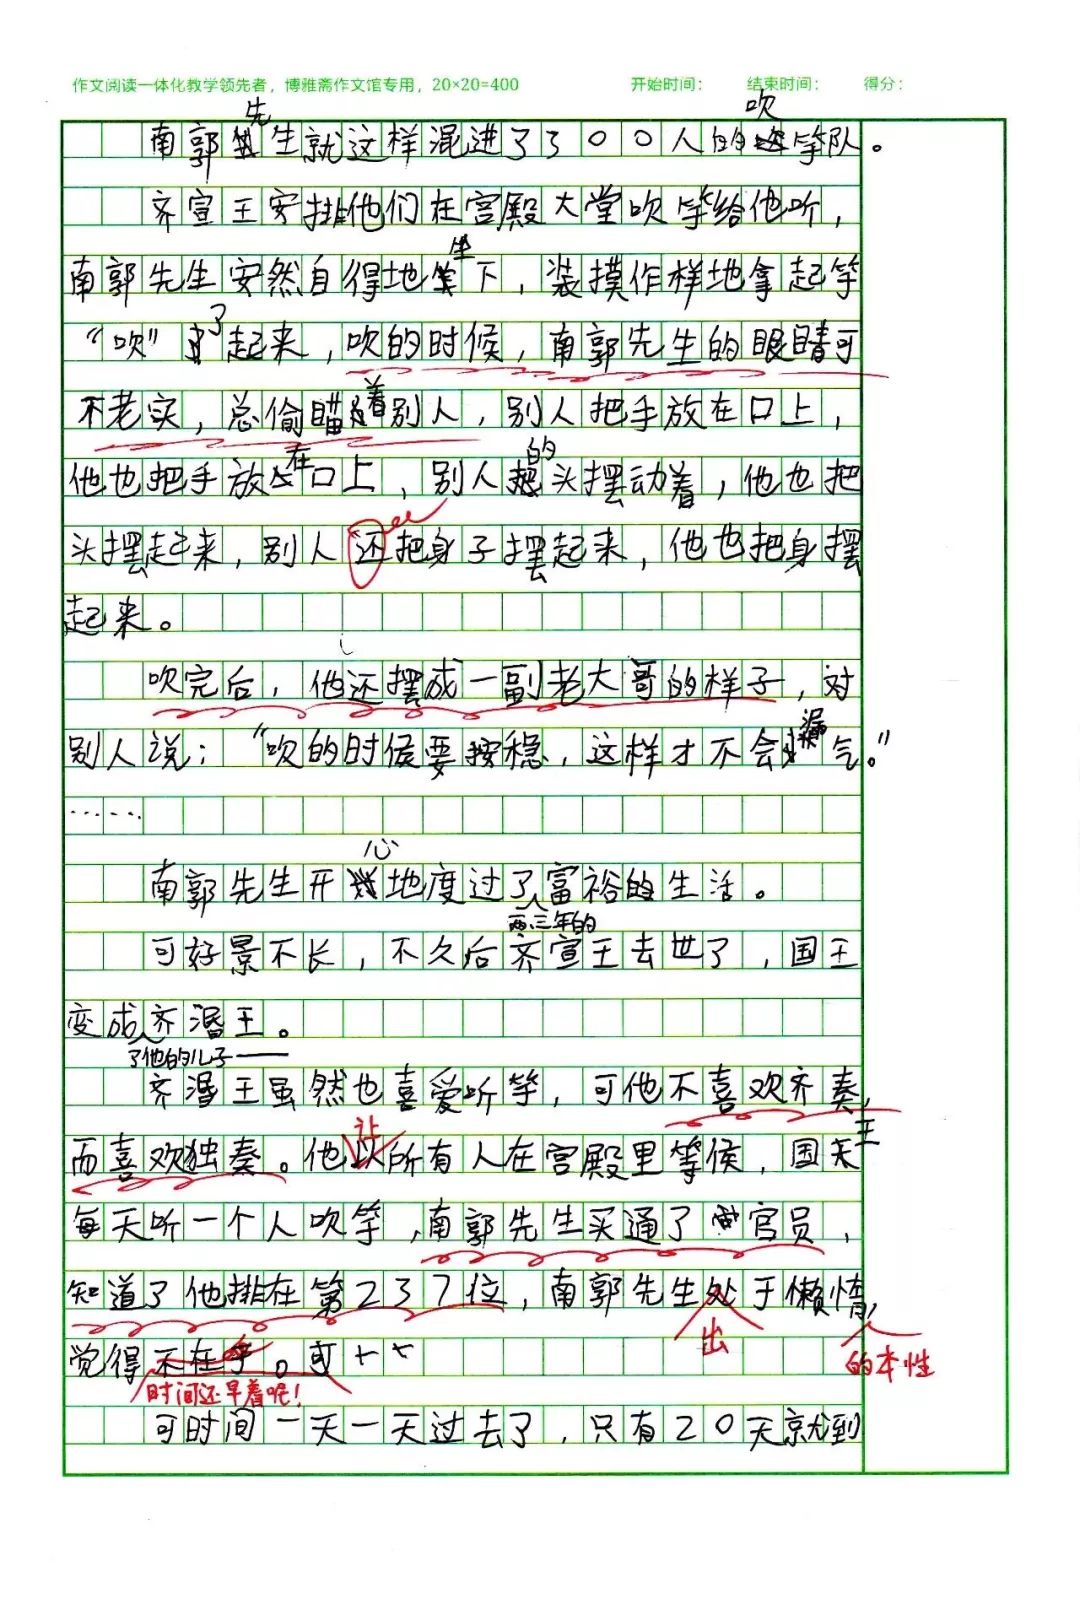 作文阅读一体化教学领先者，博雅斋作文馆专用，20×20=400 开始时间： 结束时间： 得分：
先 吹
南郭生就这样混进了300人的竽队。
齐宣王安排他们在宫殿大堂吹竽给他听，
坐
南郭先生安然自得地下，装摸作样地拿起竽
了
“吹”起来，吹的时候，南郭先生的眼睛可
着
不老实，总偷瞄别人，别人把手放在口上，
在 的
他也把手放口上，别人头摆动着，他也把
头摆起来，别人还把身子摆起来，他也把身摆
起来。
吹完后，他还摆成一副老大哥的样子，对
漏
别人说：“吹的时候要按稳，这样才不会气。”
……
心
南郭先生开地度过了富裕的生活。
两三年的
可好景不长，不久后齐宣王去世了，国王
变成齐湣王。
了他的儿子——
齐湣王虽然也喜爱听竽，可他不喜欢齐奏，
让 王
而喜欢独奏。他以所有人在宫殿里等候，国
每天听一个人吹竽，南郭先生买通了官员，
知道了他排在第237位，南郭先生处于懒惰，
出
觉得不在乎。
的本性
时间还早着呢！
可时间一天一天过去了，只有20天就到